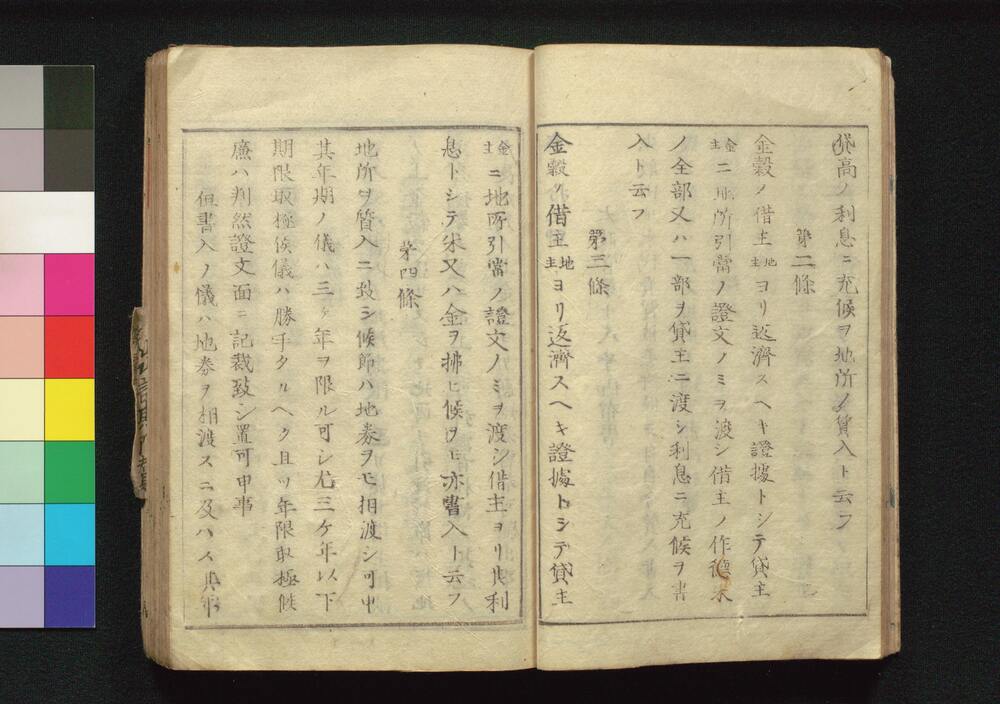 貸高ノ利息ニ充候ヲ地所ノ質入ト云フ
第二條
金穀ノ借主地主ヨリ返濟スヘキ證據トシテ貸主
金主ニ地所引當ノ證文ノミヲ渡シ借主ノ作德米
ノ全部又ハ一部ヲ貸主ニ渡シ利息ニ充候ヲ書
入ト云フ
第三條
金穀ノ借主地主ヨリ返濟スヘキ證據トシテ貸主
金主ニ地所引當ノ證文ノミヲ渡シ借主ヨリ其利
息トシテ米又ハ金ヲ拂ヒ候ヲモ亦書入ト云フ
第四條
地所ヲ質入ニ致シ候節ハ地券ヲモ相渡シ可申
其年期ノ儀ハ三ヶ年ヲ限ル可シ尤三ケ年以下
期限取極候儀ハ勝手タルヘク且ツ年限取極候
廉ハ判然證文面ニ記裁致シ置可申事
但書入ノ儀ハ地券ヲ相渡スニ及ハス其